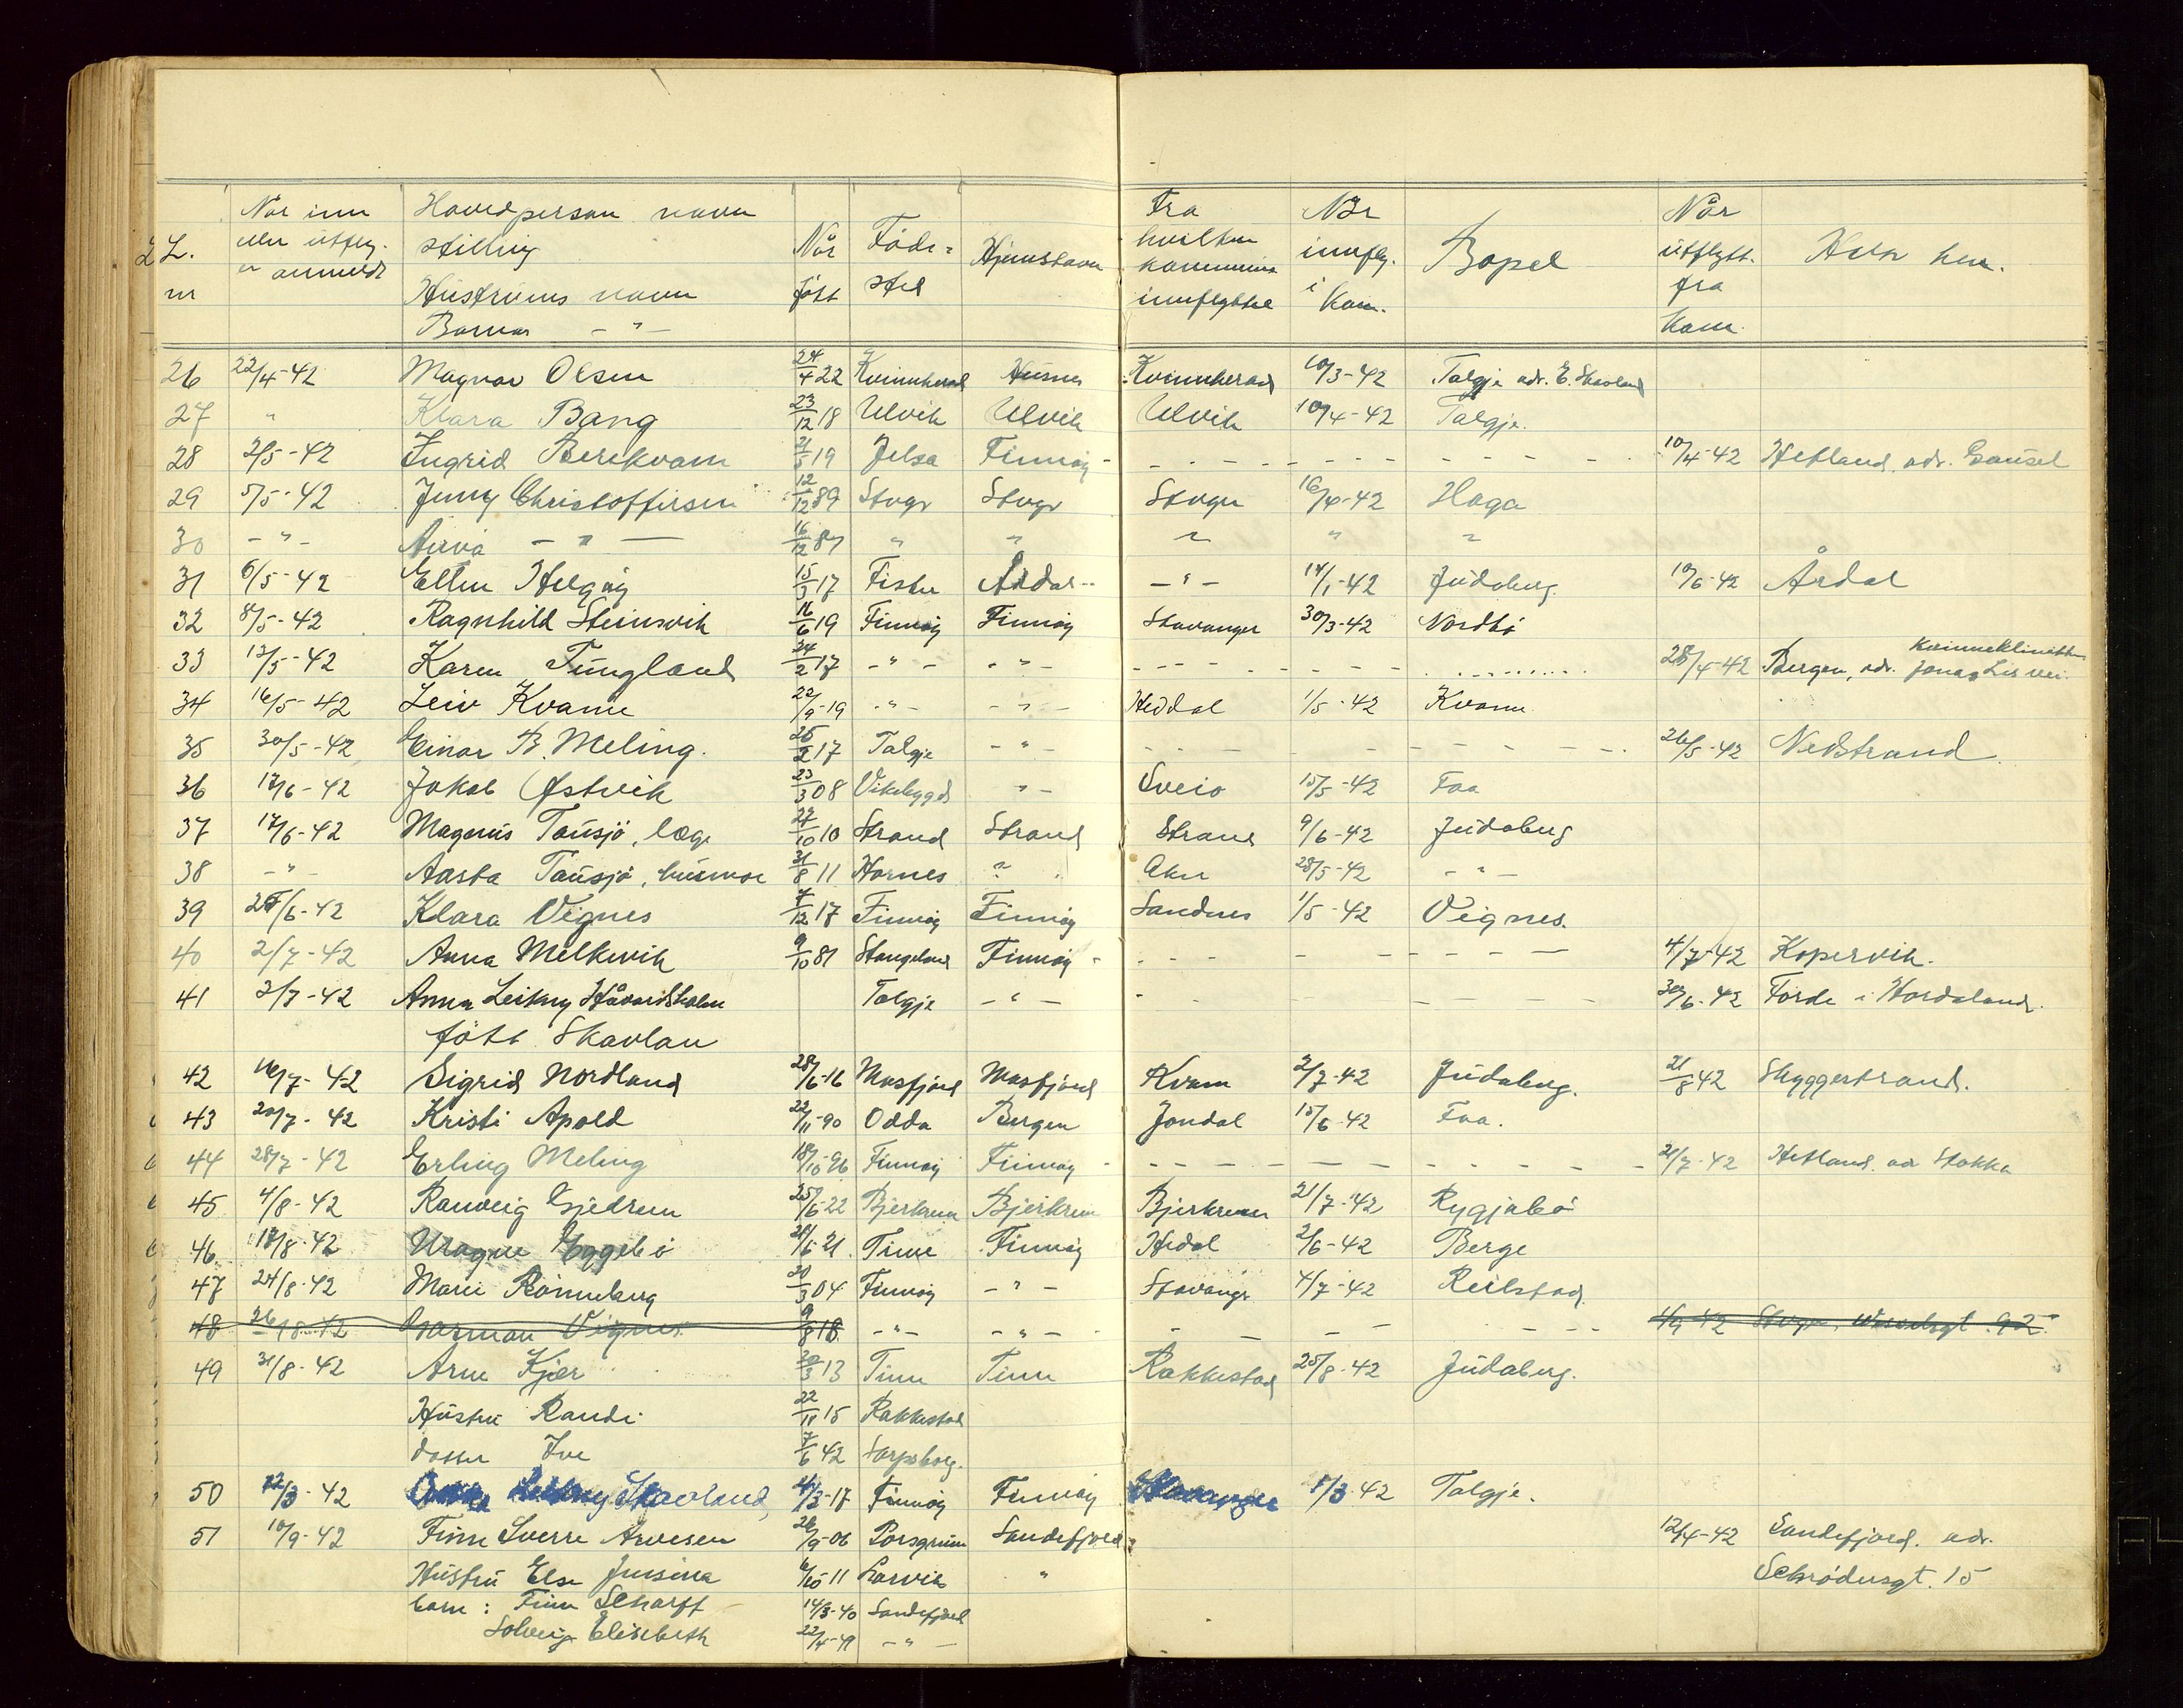 L. nr | Når inn eller utfly. er anmeldt | Hovedperson navn stilling Hustruens navn Barnas - " - | Når født | Föde-sted | Hjemstavn | Fra hvilken kommune innflyttet | Når innfly. i kom. | Bopel | Når utflytt. fra kom. | Hvor hen.
26 22/4-42 Magnar Olsen 24/4 22 Kvinnherad Husnes Kvinnherad 10/3-42 Talgje adr. E. Skavland
27 " Klara Bang 23/12 18 Ulvik Ulvik Ulvik 10/4-42 Talgje.
28 2/5-42 Ingrid Berekvam 21/5 19 Jelsa Finnöy - - - - 10/4-42 Hetland. adr. Gausel
29 5/5-42 Jenny Christoffersen 12/12 89 Stvgr Stvgr Stvgr 16/4-42 Haga
30 - " - - " - 16/12 87 " " " " "
31 6/5-42 Ellen Helgöy 15/3 17 Fister Årdal - " - 14/1-42 Judaberg. 10/6-42 Årdal
32 8/5-42 Ragnhild Steinsvik 16/6 19 Finnöy Finnöy Stavanger 30/3-42 Nordbö
33 12/5-42 Karen Tungland 24/2 17 - " - - " - - - - - 28/4-42 Bergen, adr. Kvinneklinikken Jonas Lies vei.
34 16/5-42 Leiv Kvame 22/9-19 - " - - " - Heddal 1/5-42 Kvame
35 30/5-42 Einar B. Meling. 26/2 17 Talgje - " - - - - - 26/5-42 Nedstrand
36 12/6-42 Jakob Østvik 23/3 08 Vikebygd " - Sveio 15/5-42 Foa
37 17/6-42 Magnus Tausjö, læge 27/10 10 Strand Strand Strand 9/6-42 Judaberg
38 - " - Aasta Tausjö, husmor 31/8 11 Hornes " Aker 28/5-42 - " -
39 25/6-42 Klara Vignes 7/12 17 Finnöy Finnöy Sandnes 1/5-42 Vignes.
40 2/7-42 Anna Melkevik 9/10 81 Stangeland Finnöy - - - - 4/7-42 Kopervik.
41 3/7-42 Anna Leikny Håvardsholm Talgje - " - - - - - 30/6-42 Förde i Hordaland.
födt Skavlan
42 16/7-42 Sigrid Nordland 28/6-16 Masfjord Masfjord Kvam 2/7-42 Judaberg. 21/8 42 Skyggestrand.
43 20/7-42 Kristi Apold 22/11-90 Odda Bergen Jondal 15/6-42 Foa.
44 28/7-42 Erling Meling 18/10-96 Finnöy Finnöy - - - - 21/7-42 Hetland. adr Stokka
45 4/8-42 Ranveig Gjedrem 25/6-22 Bjerkreim Bjerkreim Bjerkreim 21/7-42 Rygjabö
46 18/8-42 Magne Eggebö 28/6 21 Time Finnöy Hedal 2/6-42 Berge
47 24/8-42 Marie Rönneberg 20/3 04 Finnöy - " - Stavanger 4/7-42 Reilstad.
48 26/8-42 Norman Vignes 9/8 18 - " - - " - - - - - 1/9-42 Stvgr. 92.
49 31/8-42 Arne Kjær 30/3 13 Tinn Tinn Rakkestad 25/8-42 Judaberg.
Hustru Randi 22/11 15 Rakkestad
datter Ive 7/6 42 Sarpsborg.
50 12/3-42 Anna Leikny Skavland, 4/3-17 Finnöy Finnöy Stavanger 1/3-42 Talgje.
51 10/9-42 Finn Sverre Arvesen 26/9-06 Porsgrunn Sandefjord 12/4-42 Sandefjord. adr.
Hustru Else Jensine 6/10-11 Larvik " Schrödersgt. 15
barn: Finn Scharff 14/3-40 Sandefjord
Solveig Elisabeth 22/4-41 - " -